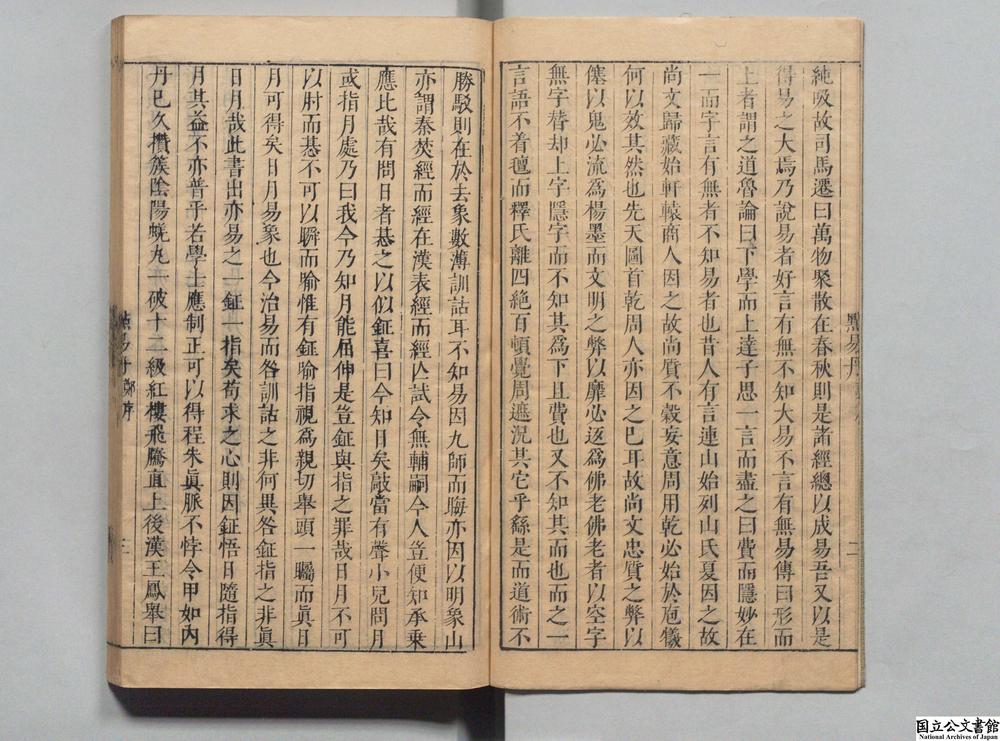 純吸故司馬遷曰萬物聚散在春秋則是諸經總以成易吾又以是
得易之大焉乃說易者好言有無不知大易不言有無易傳曰形而
上者謂之道魯論曰下學而上達子思一言而盡之曰費而隱妙在
一而字言有無者不知易者也昔人有言連山始列山氏夏因之故
尚文歸藏始軒轅商人因之故尚質不穀妄意周用乾必始於庖犧
何以效其然也先天圖首乾周人亦因之已耳故尚文忠質之弊以
僿以鬼必流爲楊墨而文明之弊以靡必返爲佛老佛老者以空字
無字替却上字隱字而不知其爲下且費也又不知其而也而之一
言語不着䢱而釋氏離四絶百頓覺周遮況其它乎繇是而道術不
勝駁則在於去象數薄訓詁耳不知易因九師而晦亦因以明象山
亦謂秦焚經而經在漢表經而經亾試令無輔嗣今人豈便知承乗
應比哉有問日者惎之以似鉦喜曰今知日矣敲當有聲小兒問月
或指月處乃曰我今乃知月能屈伸是豈鉦與指之罪哉日月不可
以肘而惎不可以瞬而喻惟有鉦喻指視爲親切舉頭一矚而眞日
月可得矣日月易象也今治易而咎訓詁之非何異咎鉦指之非眞
日月哉此書出亦易之一鉦一指矣苟求之心則因鉦悟日隨指得
月其益不亦普乎若學士應制正可以得程朱眞脈不悖令甲如內
丹已久攢簇陰陽蜣丸一破十二級紅樓飛騰直上後漢王鳳舉曰
黙易丹
二
鄭序
三
国立公文書館
National Archives of Japan